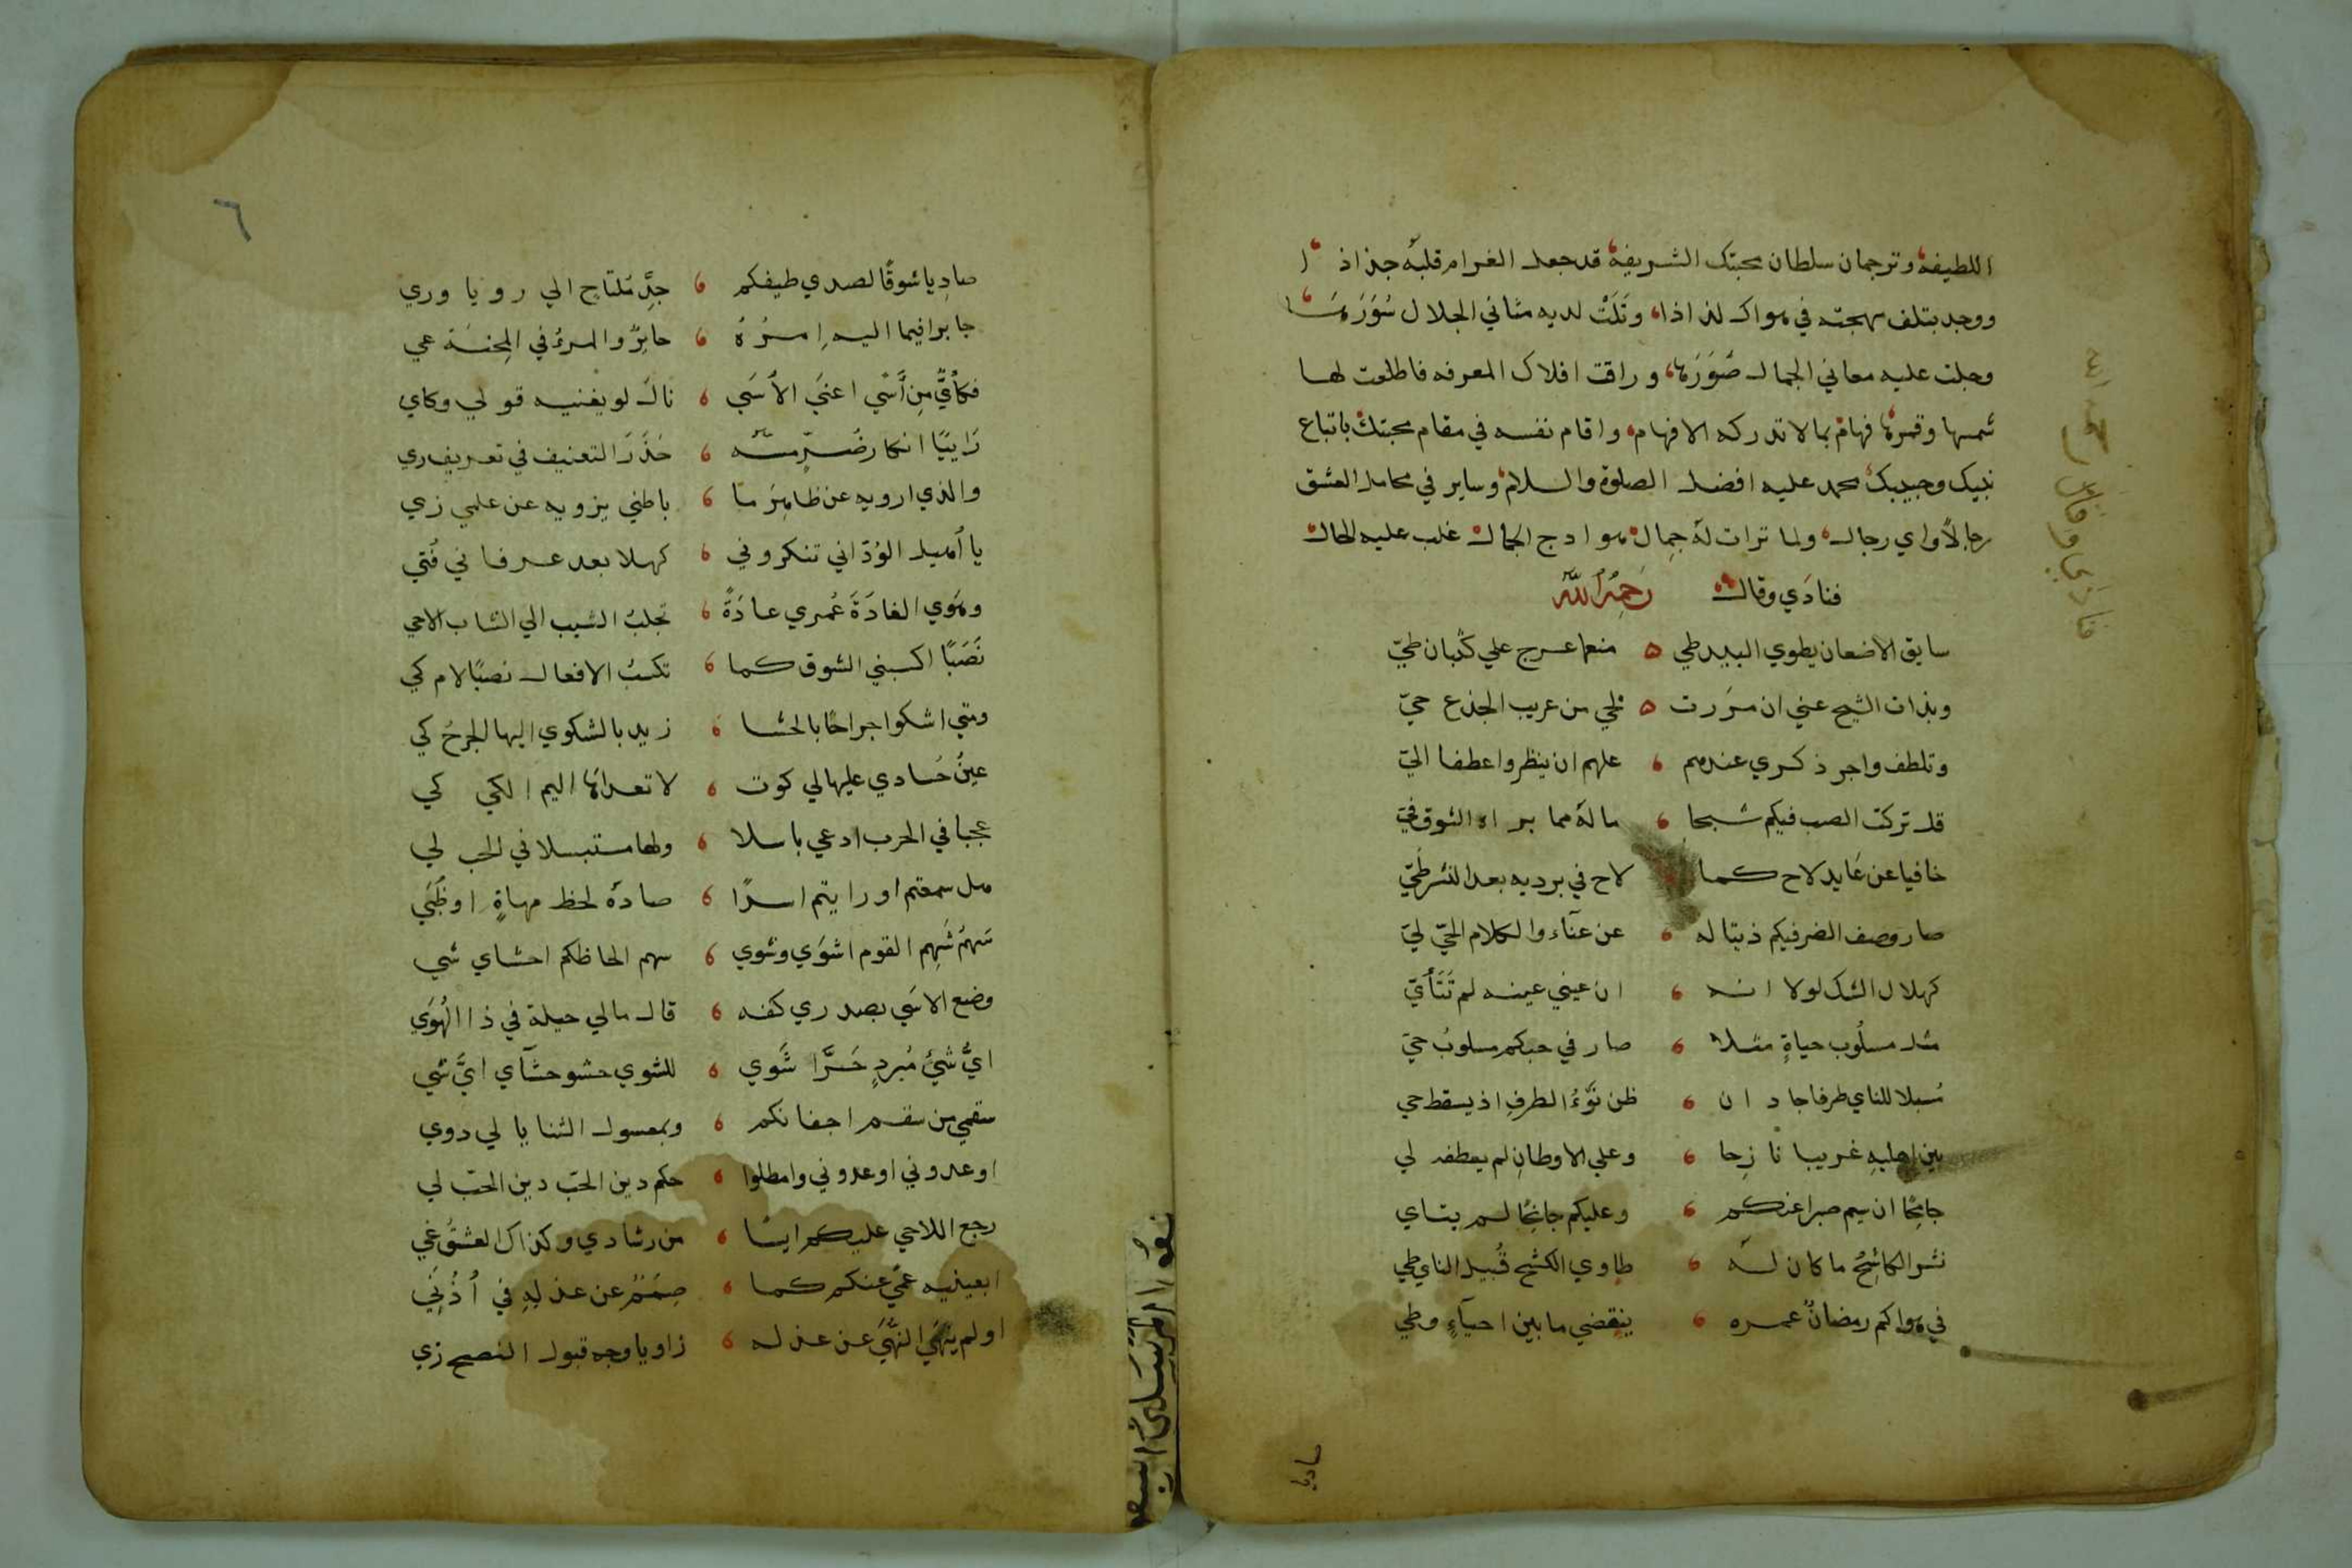 اللطيفة وترجمان سلطان محبتك الشريفة قد جعل الغرام قلبه جذاذا
ووجد بتلف مهجته في هواك لذاذا، وتَلَتْ لديه مثاني الجلال سُوَرَهَا
وجلت عليه معاني الجمال صُوَرَها، وراقت افلاك المعرفه فاطلعت لها
شمسها وقمرها فهام بما لا تدركه الافهام، واقام نفسه في مقام محبتك باتباع
نبيك وحبيبك محمد عليه افضل الصلوة والسلام وساير في محامل العشق
رجالاً واي رجال، ولما تراات له جِمال هوادج الجمال غلب عليه الحال
فنادَي وقال رَحِمَهُ اللّه
سايق الاضعان يطوي البيد طي ٥ منعما عرج علي كُثبان طيّ
وبذات الشيح عني ان مرَرت ٥ بحي من عريب الجذع حيّ
وتلطف واجر ذكري عندهم ، علهم ان ينظروا عطفا اليّ
قل تركت الصب فيكم شبحا ، ماله مما براه الشوق فيّ
خافيا عن عَايد لاح كما لاح في برديه بعد النشر طَيّ
صار وصف الضر فيكم ذيتا له ، عن عنآء والكلام الحيّ ليّ
كهلال الشك لولا انه ، ان عيني عينه لم تَتَأَيّ
مثل مسلُوب حياةٍ مثلا ، صار في حبكم مسلوبُ حيّ
مُسبلا للناي طرفا جاد ان ، ظن نَوْءُ الطرفِ اذ يسقط حي
بين اهليهِ غريبا نازِحا ، وعلي الاوطانِ لم يعطفه لي
جامِحًا ان سيم صبرا عنكم ، وعليكم جانِحًا لم يتاي
نشر الكاشِحُ ما كان له ، طاوي الكشح قُبيل الناي طي
في هواكم رمضانٌ عمره ، ينقضي ما بين احيآءٍ وطي
صاديا
فنادي وقال
٦
صادِيا شوقًا لصدي طيفكم ، جِدِّ مُلتاحٍ الي رويا وري
جابرا فيما اليه اِمرُهُ ، حايِرٌ والمرءُ في المِحنَة عي
فكأَيٍّ مِن أَسًي اعيَي الأسَي ، نال لو يغنيه قولي وكاي
رَايِيًا انكار ضُرٍّ مسّه ، حَذَرَ التعنيف في تعريف ري
والذي ارويه عن ظاهِرِ ما ، باطني يزويه عن علمي زي
يا اُهيل الوُدّ اني تنكروني ، كهلا بعد عرفاني فُتي
وهَوي الغادَةَ عُمري عادَةً ، تجلبُ الشيب الي الشاب الاحي
نَصَبًا اكسبني الشوق كما ، تكسبُ الافعال نصبًا لام كي
ومتي اشكوا جراحًا بالحشا ، زيد بالشكوي اليها الجرحُ كي
عينُ حُسادي عليها لي كوت ، لا تعداها اليم الكي كي
عجبا في الحرب ادعي باسلا ، ولها مستبسلا في الحب لي
هل سمعتم او رايتم اسدًا ، صادَهُ لحظ مهاةٍ او ظُبَي
سَهمُ شَهِم القوم اشوَي وشوي ، سهم الحاظكم احشاي شي
وضع الاسَي بصدري كفه ، قال مالي حيلة في ذا الهُوَي
ايُّ شَيْءٍ مُبردٍ حَرَّا شَوي ، للشوي حشو حشآي ايَّ شي
سقمي من سقم اجفانكم ، وبمعسول الثنايا لي دوي
اوعدوني اوعدوني وامطلوا ، حكم دين الحبّ دين الحبّ لي
رجع اللاحي عليكم ايسًا ، من رشادي وكذاك العشقُ غي
ابعينيه عَميً عنكم كما ، صِمَمٌ عن عذلِهِ في اُذُنَي
اولم ينهَي النُّهَي عن عذله ، زاويا وجه قبول النصح زي